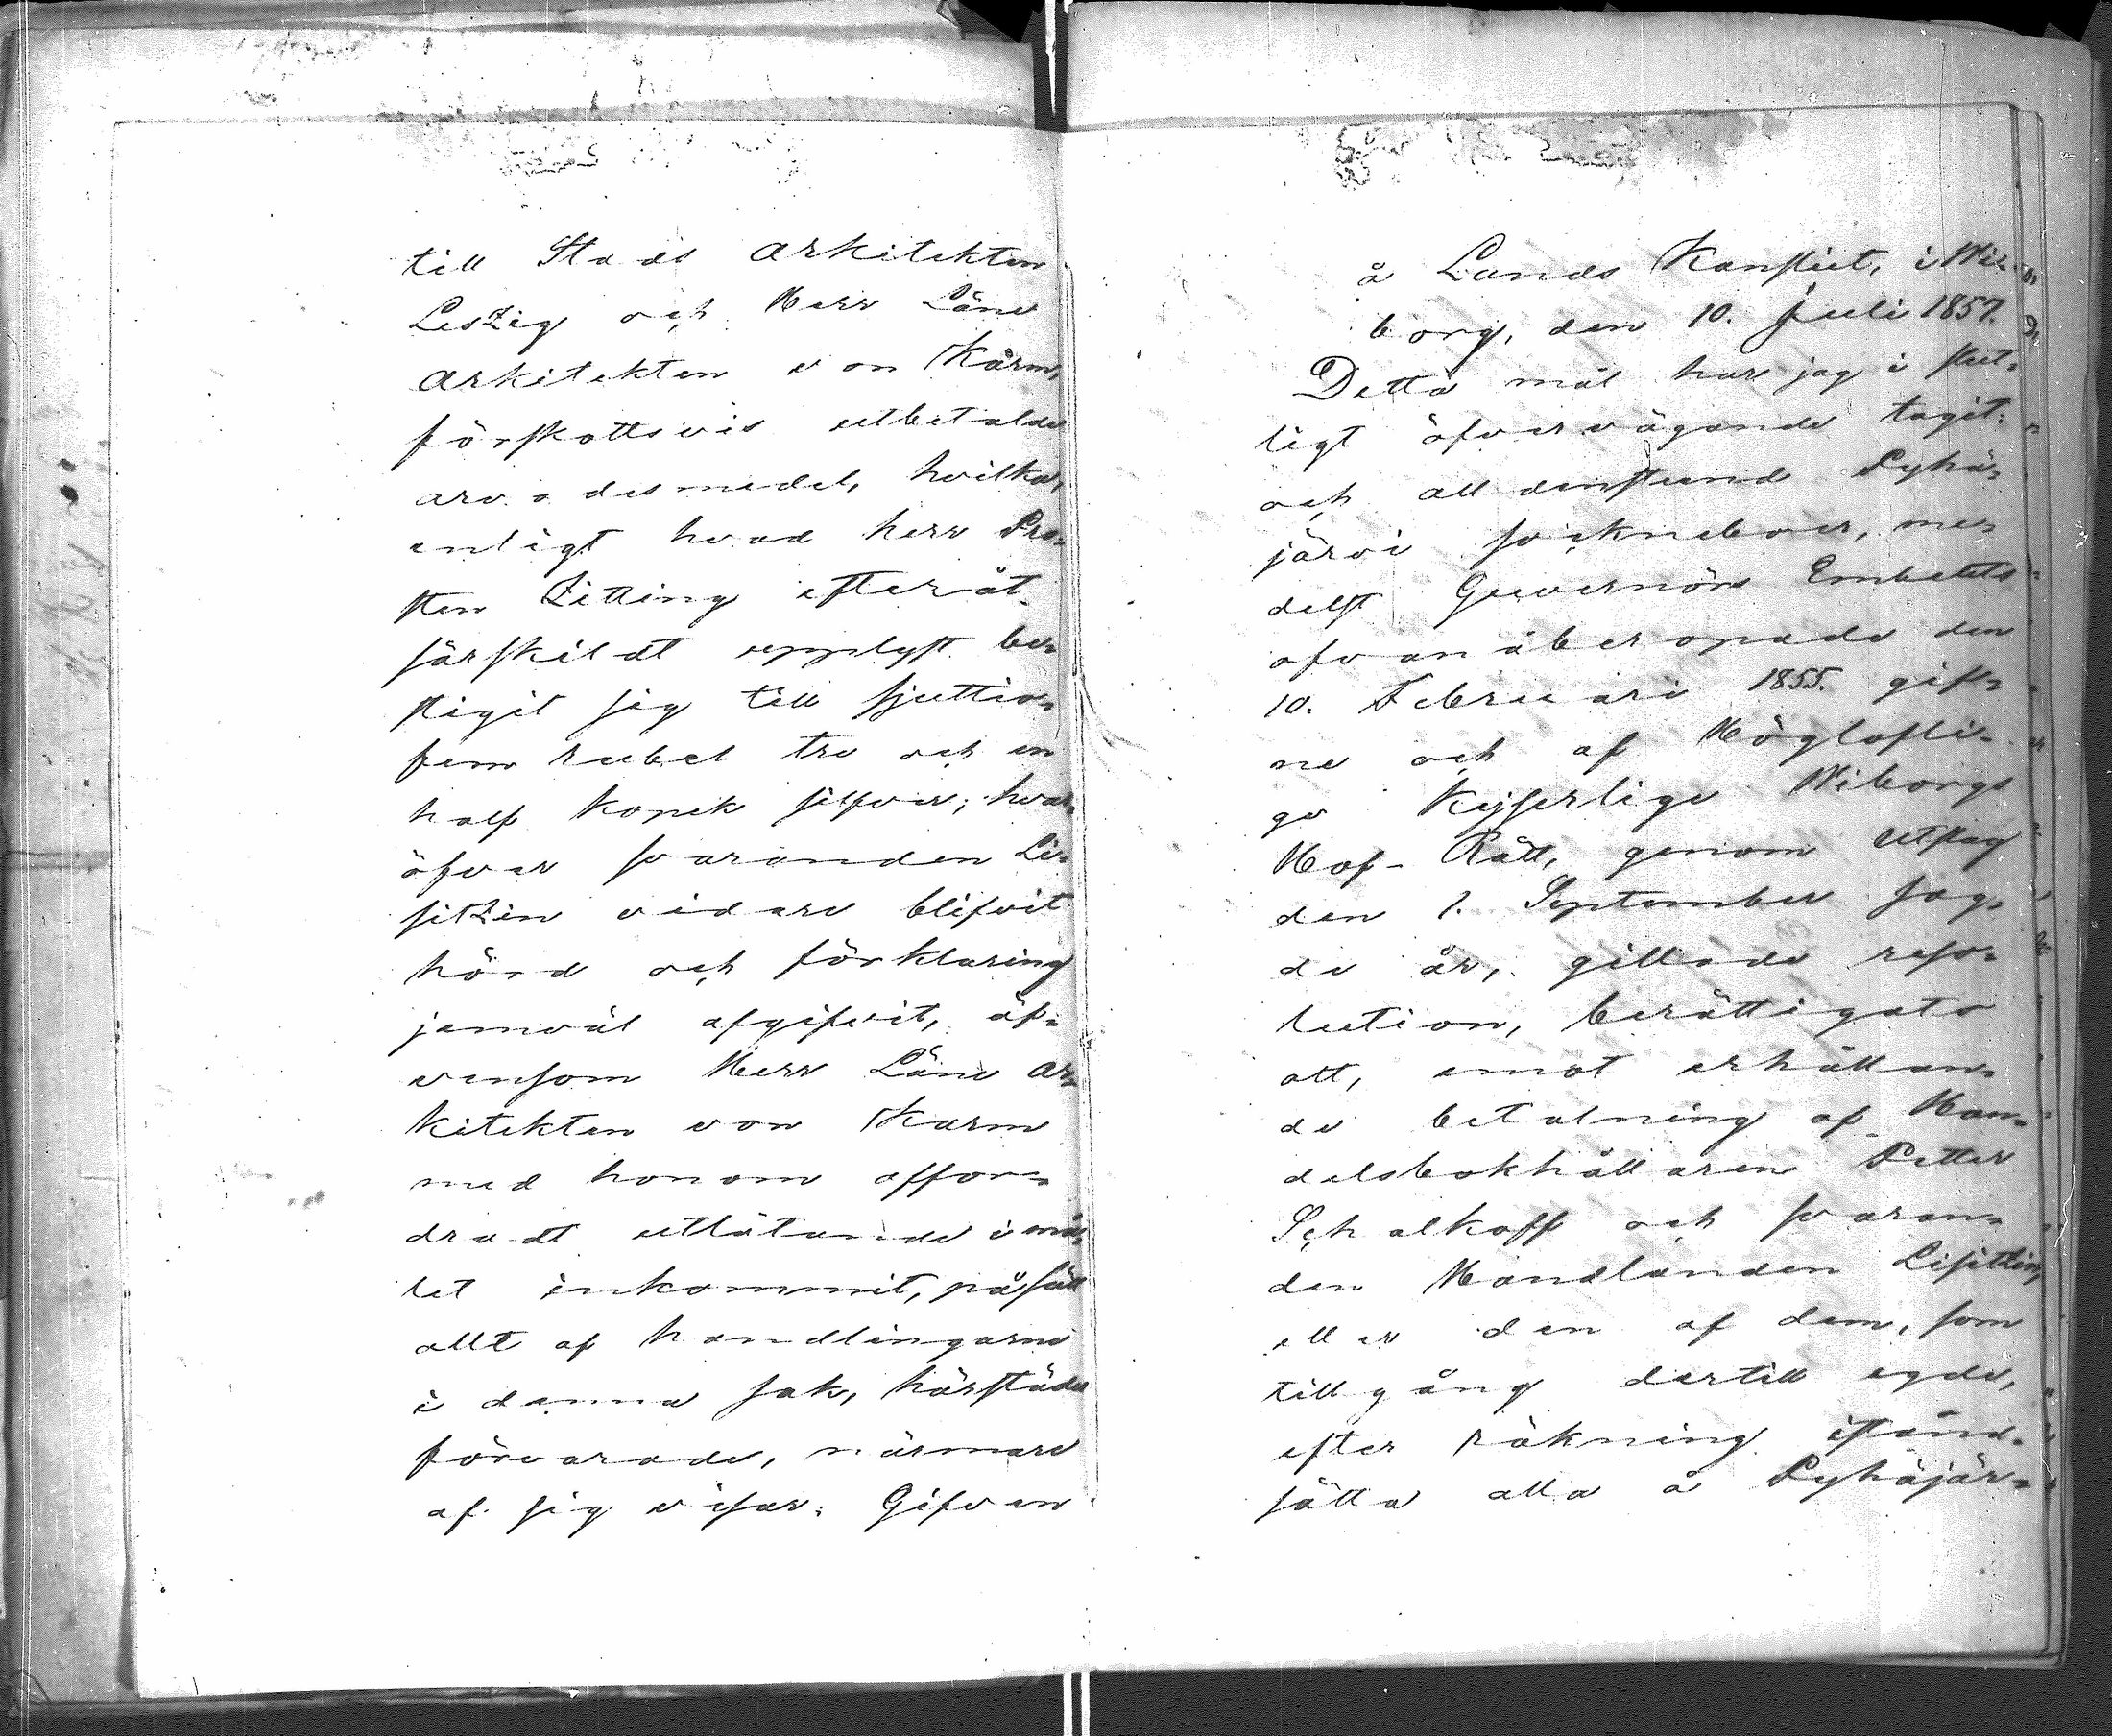 till Stads Arkitekten
Leszig och Herr Läns
Arkitekten von Kärm,
förskottsvis utbetalde
arvodesmedel, hvilka,
enligt hvad herr Pro-
sten Zitting efteråt
särskildt upplyst be-
stigit sig till sjuttio-
fem rubel tre och en
half kopek silfver; hvar-
öfver svaranden Li-
sitzin vidare blifvit
hörd och förklaring
jemväl afgifvit, äf-
vensom Herr Läns Ar-
kitekten von Karm
med honom affor-
dradt utlåtande i må-
let inkommit, på sätt
allt af handlingarne
i denna sak, härstädes
förvarade, närmare
af sig visar: Gifven
å Lands Kansliet, i Wi-
borg, den 10. Juli 1857.
Detta mål har jag i slut-
ligt öfvervägande tagit:
och alldenstund Pyhä-
järvi sockneboer, me-
delst Guvernörs Embetets
ofvanåberopade den
10. Februari 1855. gif-
ne och af Höglofli-
ge Kejserlige Wiborgs
Hof-Rätt, genom utslag
den 1. September sag-
de år, gillade reso-
lution, berättigats
att, emot erhållan-
de betalning af Han-
delsbokhållaren Petter
Schalkoff och svaran-
den Handlanden Lisitzin,
eller den af dem, som
tillgång dertill egde,
efter räkning istånd-
sätta alla å Pyhäjär-